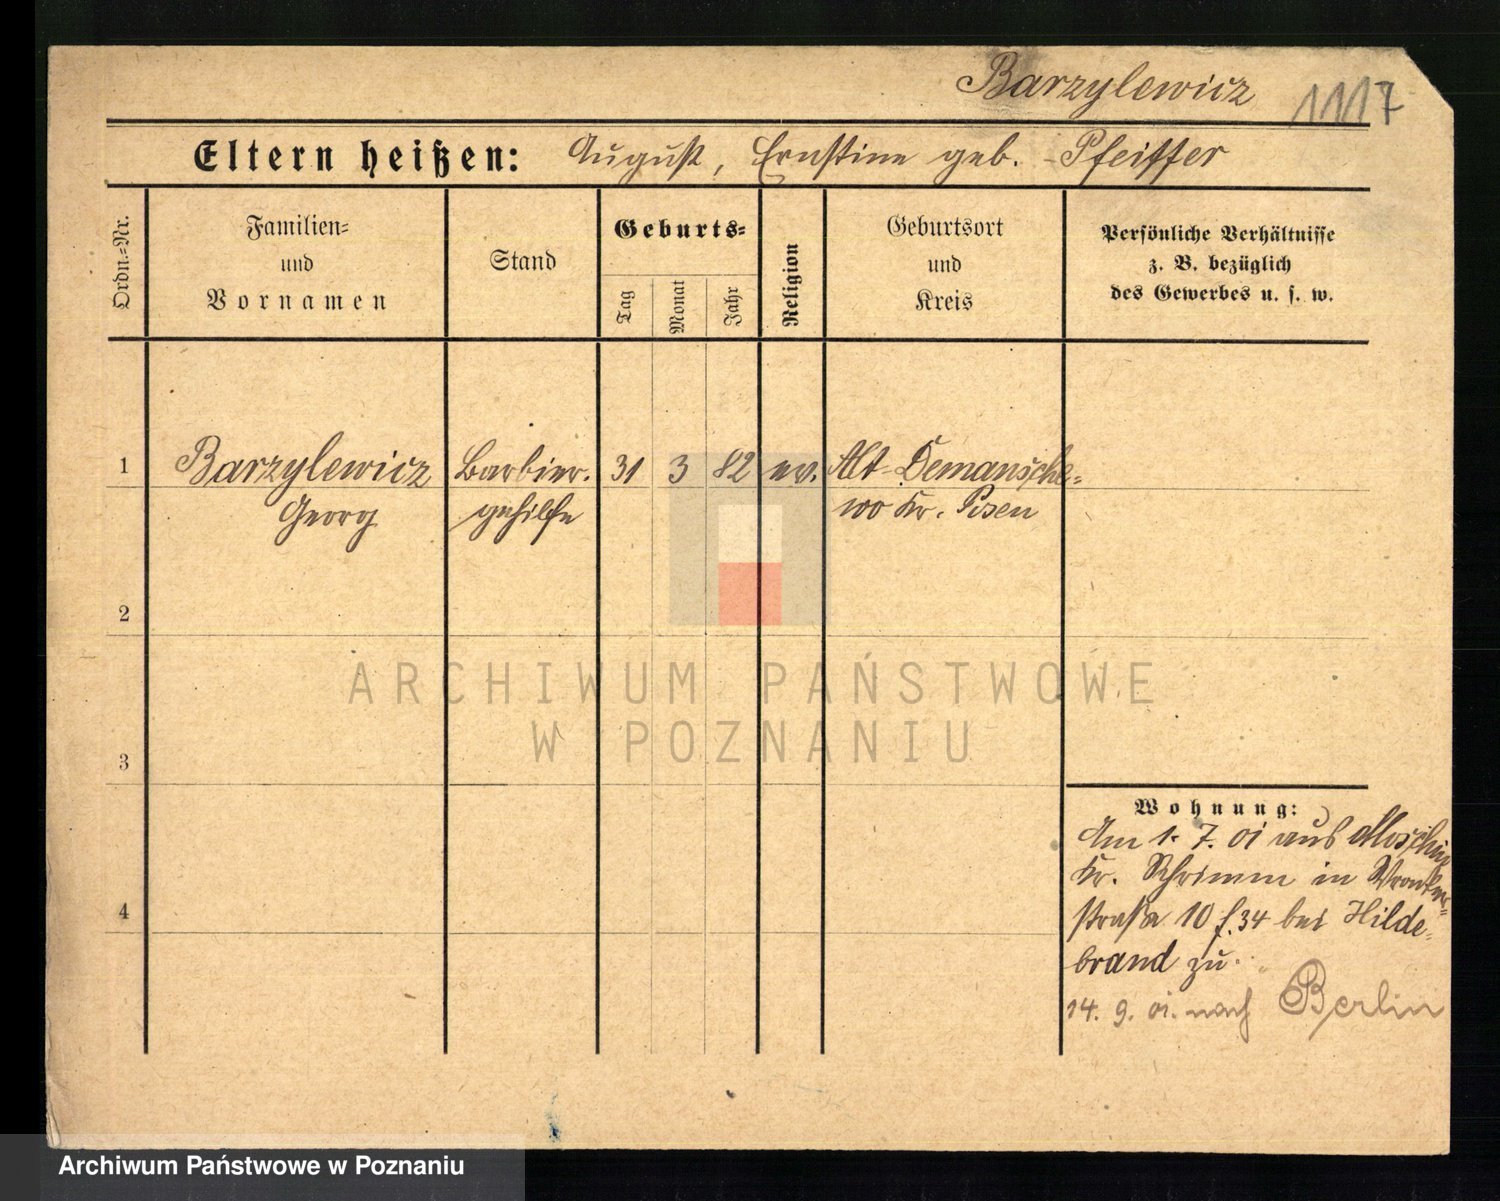 Barzylewicz 1117
Eltern heißen: August, Ernstine geb. Pfeiffer
Ordn.=Nr.
Familien=
und
Vornamen
Stand
Geburts=
Tag
Monat
Jahr
Religion
Geburtsort
und
Kreis
Persönliche Verhältnisse
z. B. bezüglich
des Gewerbes u. s. w.
1 Barzylewicz Barbier. 31 3 82 ev. Alt-Demansche=
Georg gehilfe wo Kr. Posen
2
3
4
Wohnung:
Am 1. 7. 01 aus Moschin
Kr. Schrimm in Wronker=
straße 10 f. 34 bei Hilde=
brand zu.
14. 9. 01. nach Berlin
ARCHIWUM PAŃSTWOWE
W POZNANIU
Archiwum Państwowe w Poznaniu